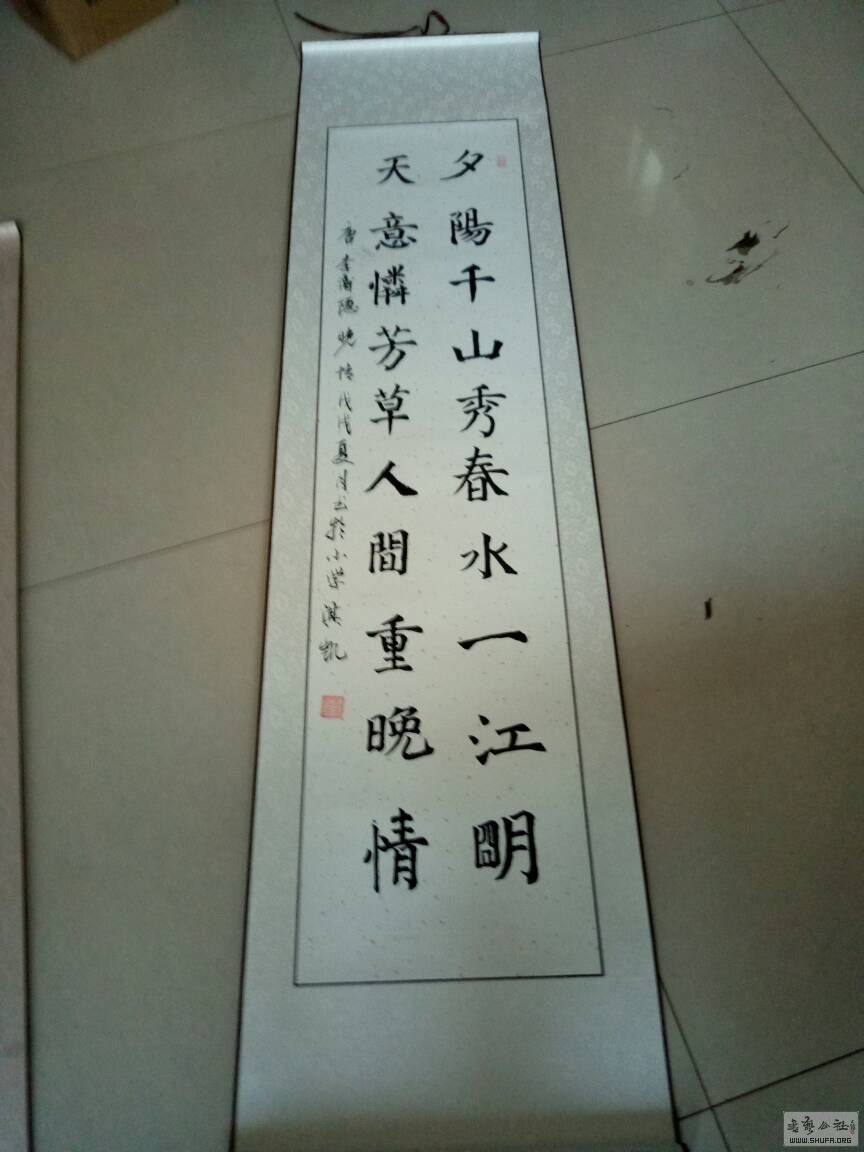 夕陽千山秀春水一江明
天意憐芳草人間重晚情
唐李商隱晚情戊戌夏月書於小棠洪凱
書藝公社
WWW.SHUFA.ORG